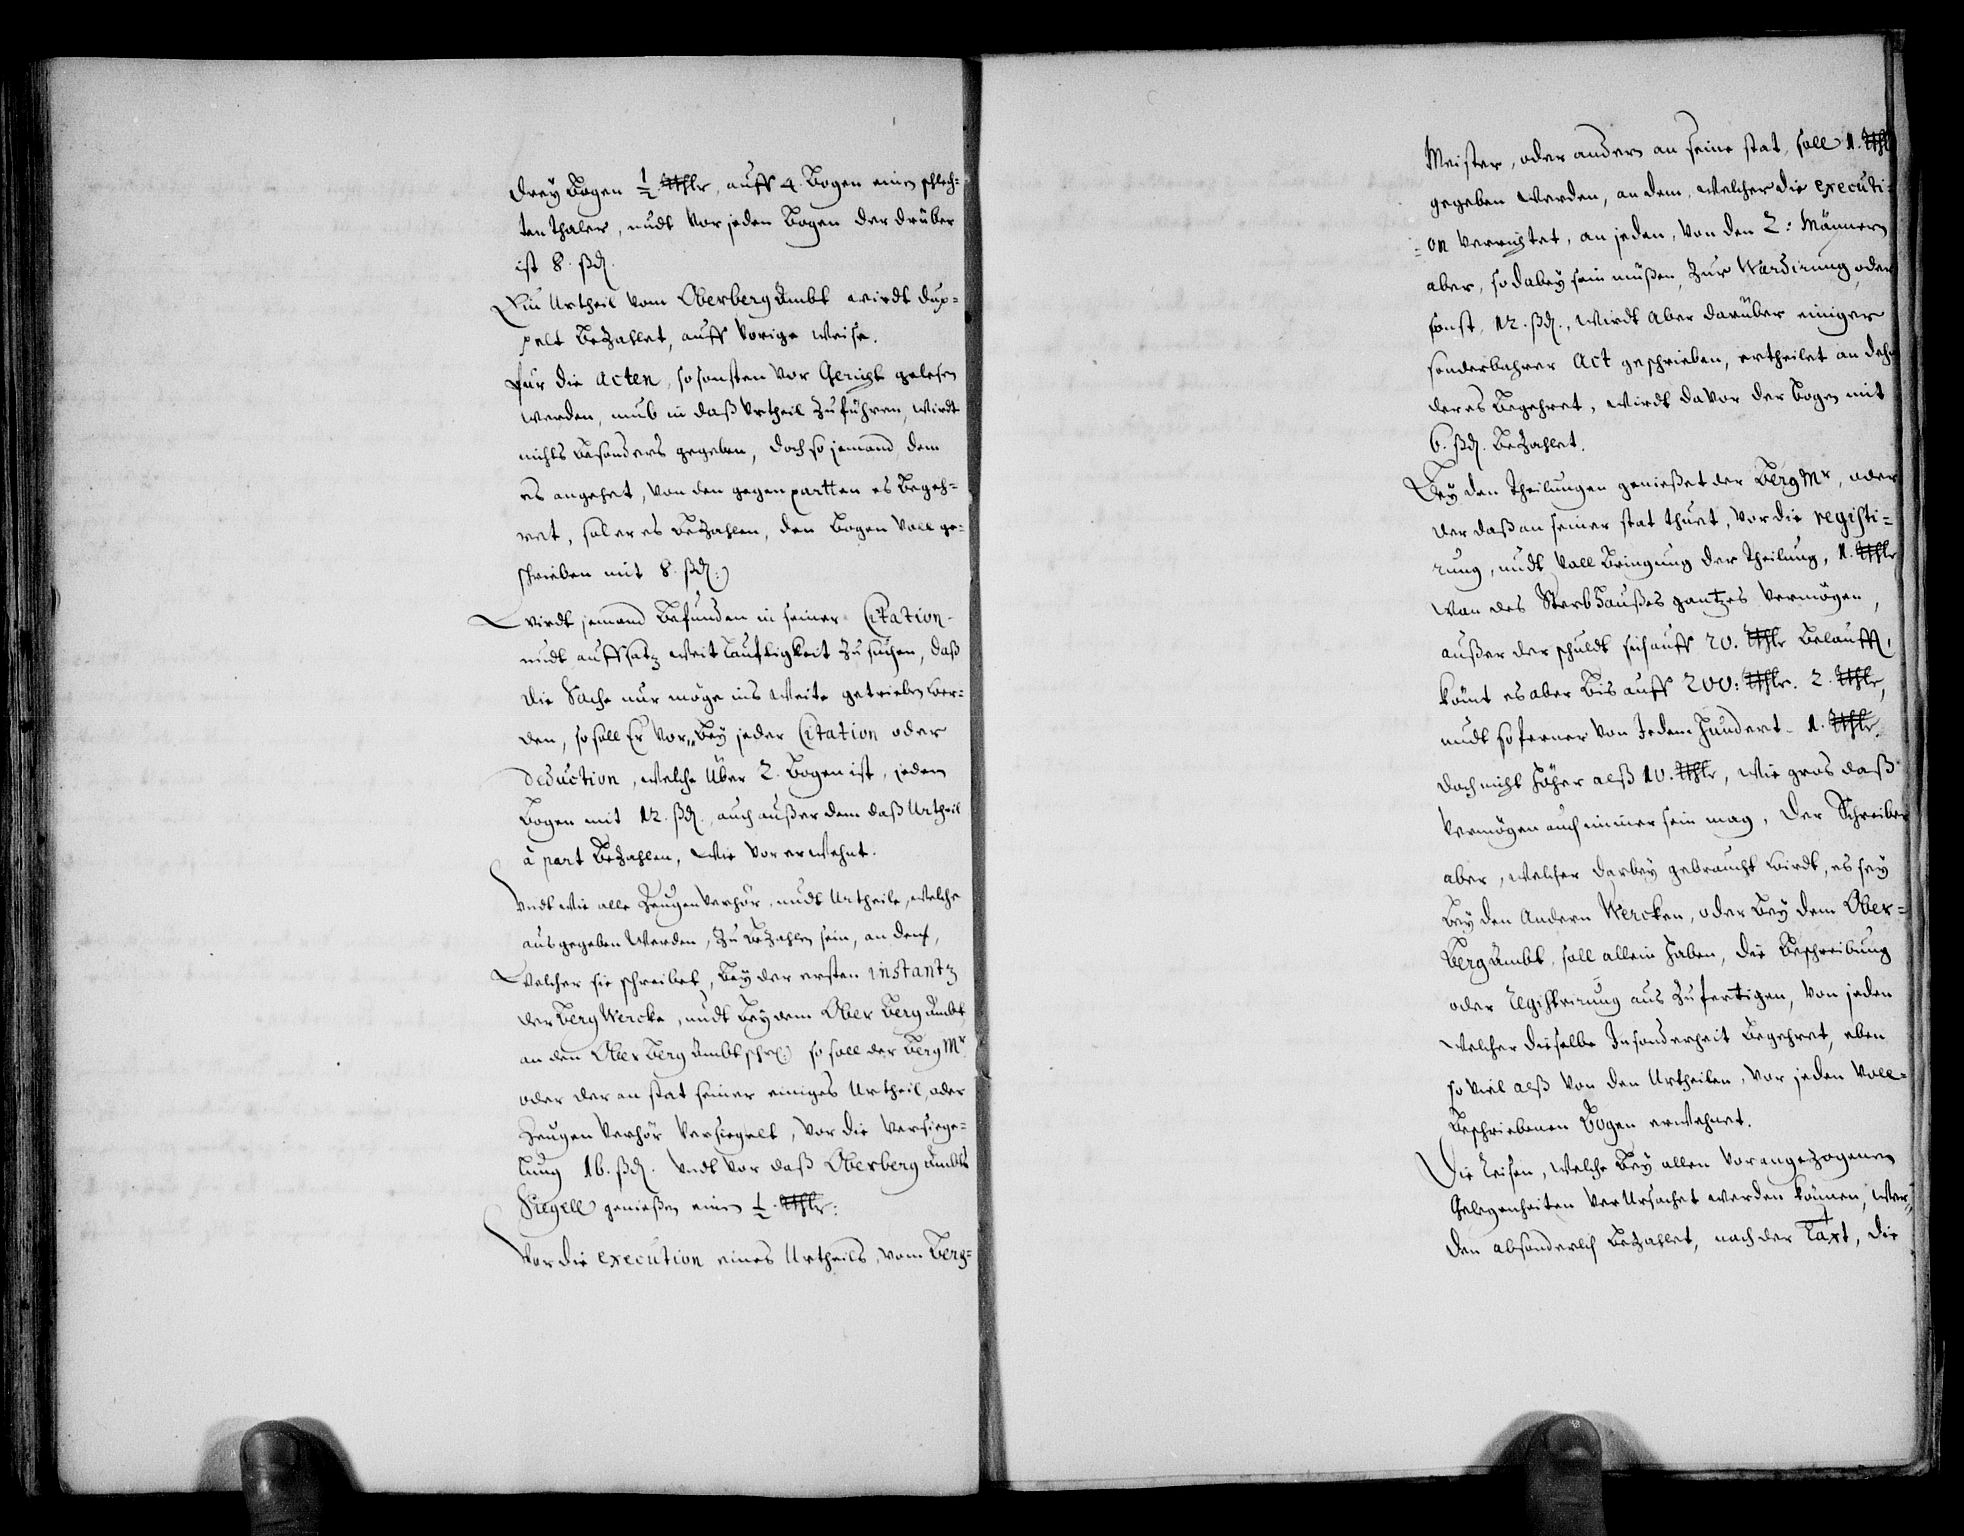 drey Bogen ½ Rthlr, auff 4 Bogen einen schlech-
ten thaler, undt vor jeden Bogen der drüber
ist 8. ßd.
Ein Urtheil vom Oberberg Ambt wirdt dup-
pelt bezahlet, auff vorige weise.
für die acten, so sonsten vor Gericht gelesen
werden, umb in daß Urtheil zu führen, wirdt
nichts besonders gegeben, doch so jemand, dem
es angehet, von den gegen partten es begeh-
ret, sol er es bezahlen, den Bogen voll ge-
schrieben mit 8. ßd.
wirdt jemand befunden in seiner Citation
undt auffsatz weitläuftigkeit zu suchen, daß
die Sache nur möge ins weite getrieben wer-
den, so soll Er vor, bey jeder Citation oder
deduction, welche über 2. Bogen ist, jedem
Bogen mit 12. ßd, auch außer dem daß Urtheil
à part bezahlen, wie vor erwehnt.
Undt wie alle Zeugen Verhör, undt Urtheile, welche
ausgegeben werden, zu bezahlen sein, an dem,
welcher sie schreibet, bey der ersten instantz
der Berg Wercke, undt bey dem Ober Berg Ambt,
an den Ober Berg Ambt schr: so soll der Berg Mr
oder der an stat seiner einiges Urtheil, oder
Zeugen Verhör versiegelt, vor die versiege-
lung 16. ßd. Undt vor daß Oberberg Ambts
Siegell genießen einen ½ Rthlr:
Vor die execution eines Urtheils, vom Berg-
Meister, oder andern an seine stat, soll 1. Rthl
gegeben werden, an dem, welcher die executi-
on verrichtet, an jeden, von den 2: Männern
aber, so dabey sein müßen, zur Wardirung, oder
sonst, 12. ßd., wirdt aber darüber einiger
sonderbahrer Act geschrieben, ertheilet an dehm
der es begehret, wirdt davor der Bogen mit
6. ßd. bezahlet.
Bey den Theilungen genießet der Berg Mr, oder
der daß an seiner stat thuet, vor die registi-
rung, undt voll bringung der Theilung, 1. Rthlr
wan des Sterb Haußes gantzes Vermögen,
außer der schuldt sich auff 20. Rthlr belaufft,
kömt es aber bis auff 200: Rthlr. 2. Rthlr,
undt so ferner von Jedem Hundert 1. Rthlr.
doch nicht höher alß 10. Rthlr, wie gros daß
Vermögen auch immer sein mag, der Schreiber
aber, welcher darbey gebraucht wirdt, es sey
bey den Andern Wercken, oder bey dem Ober-
Berg Ambt, soll allein haben, die beschreibung
oder Registrirung aus zu fertigen, von jeden
welcher dieselbe Insonderheit begehret, eben
so viel alß von den Urtheilen, vor jeden voll-
beschriebenen Bogen erwehnet.
Die Reisen, welche bey allen vorangezogenen
Gelegenheiten verursachet werden können, wer-
den absonderlich bezahlet, nach der Taxt, die